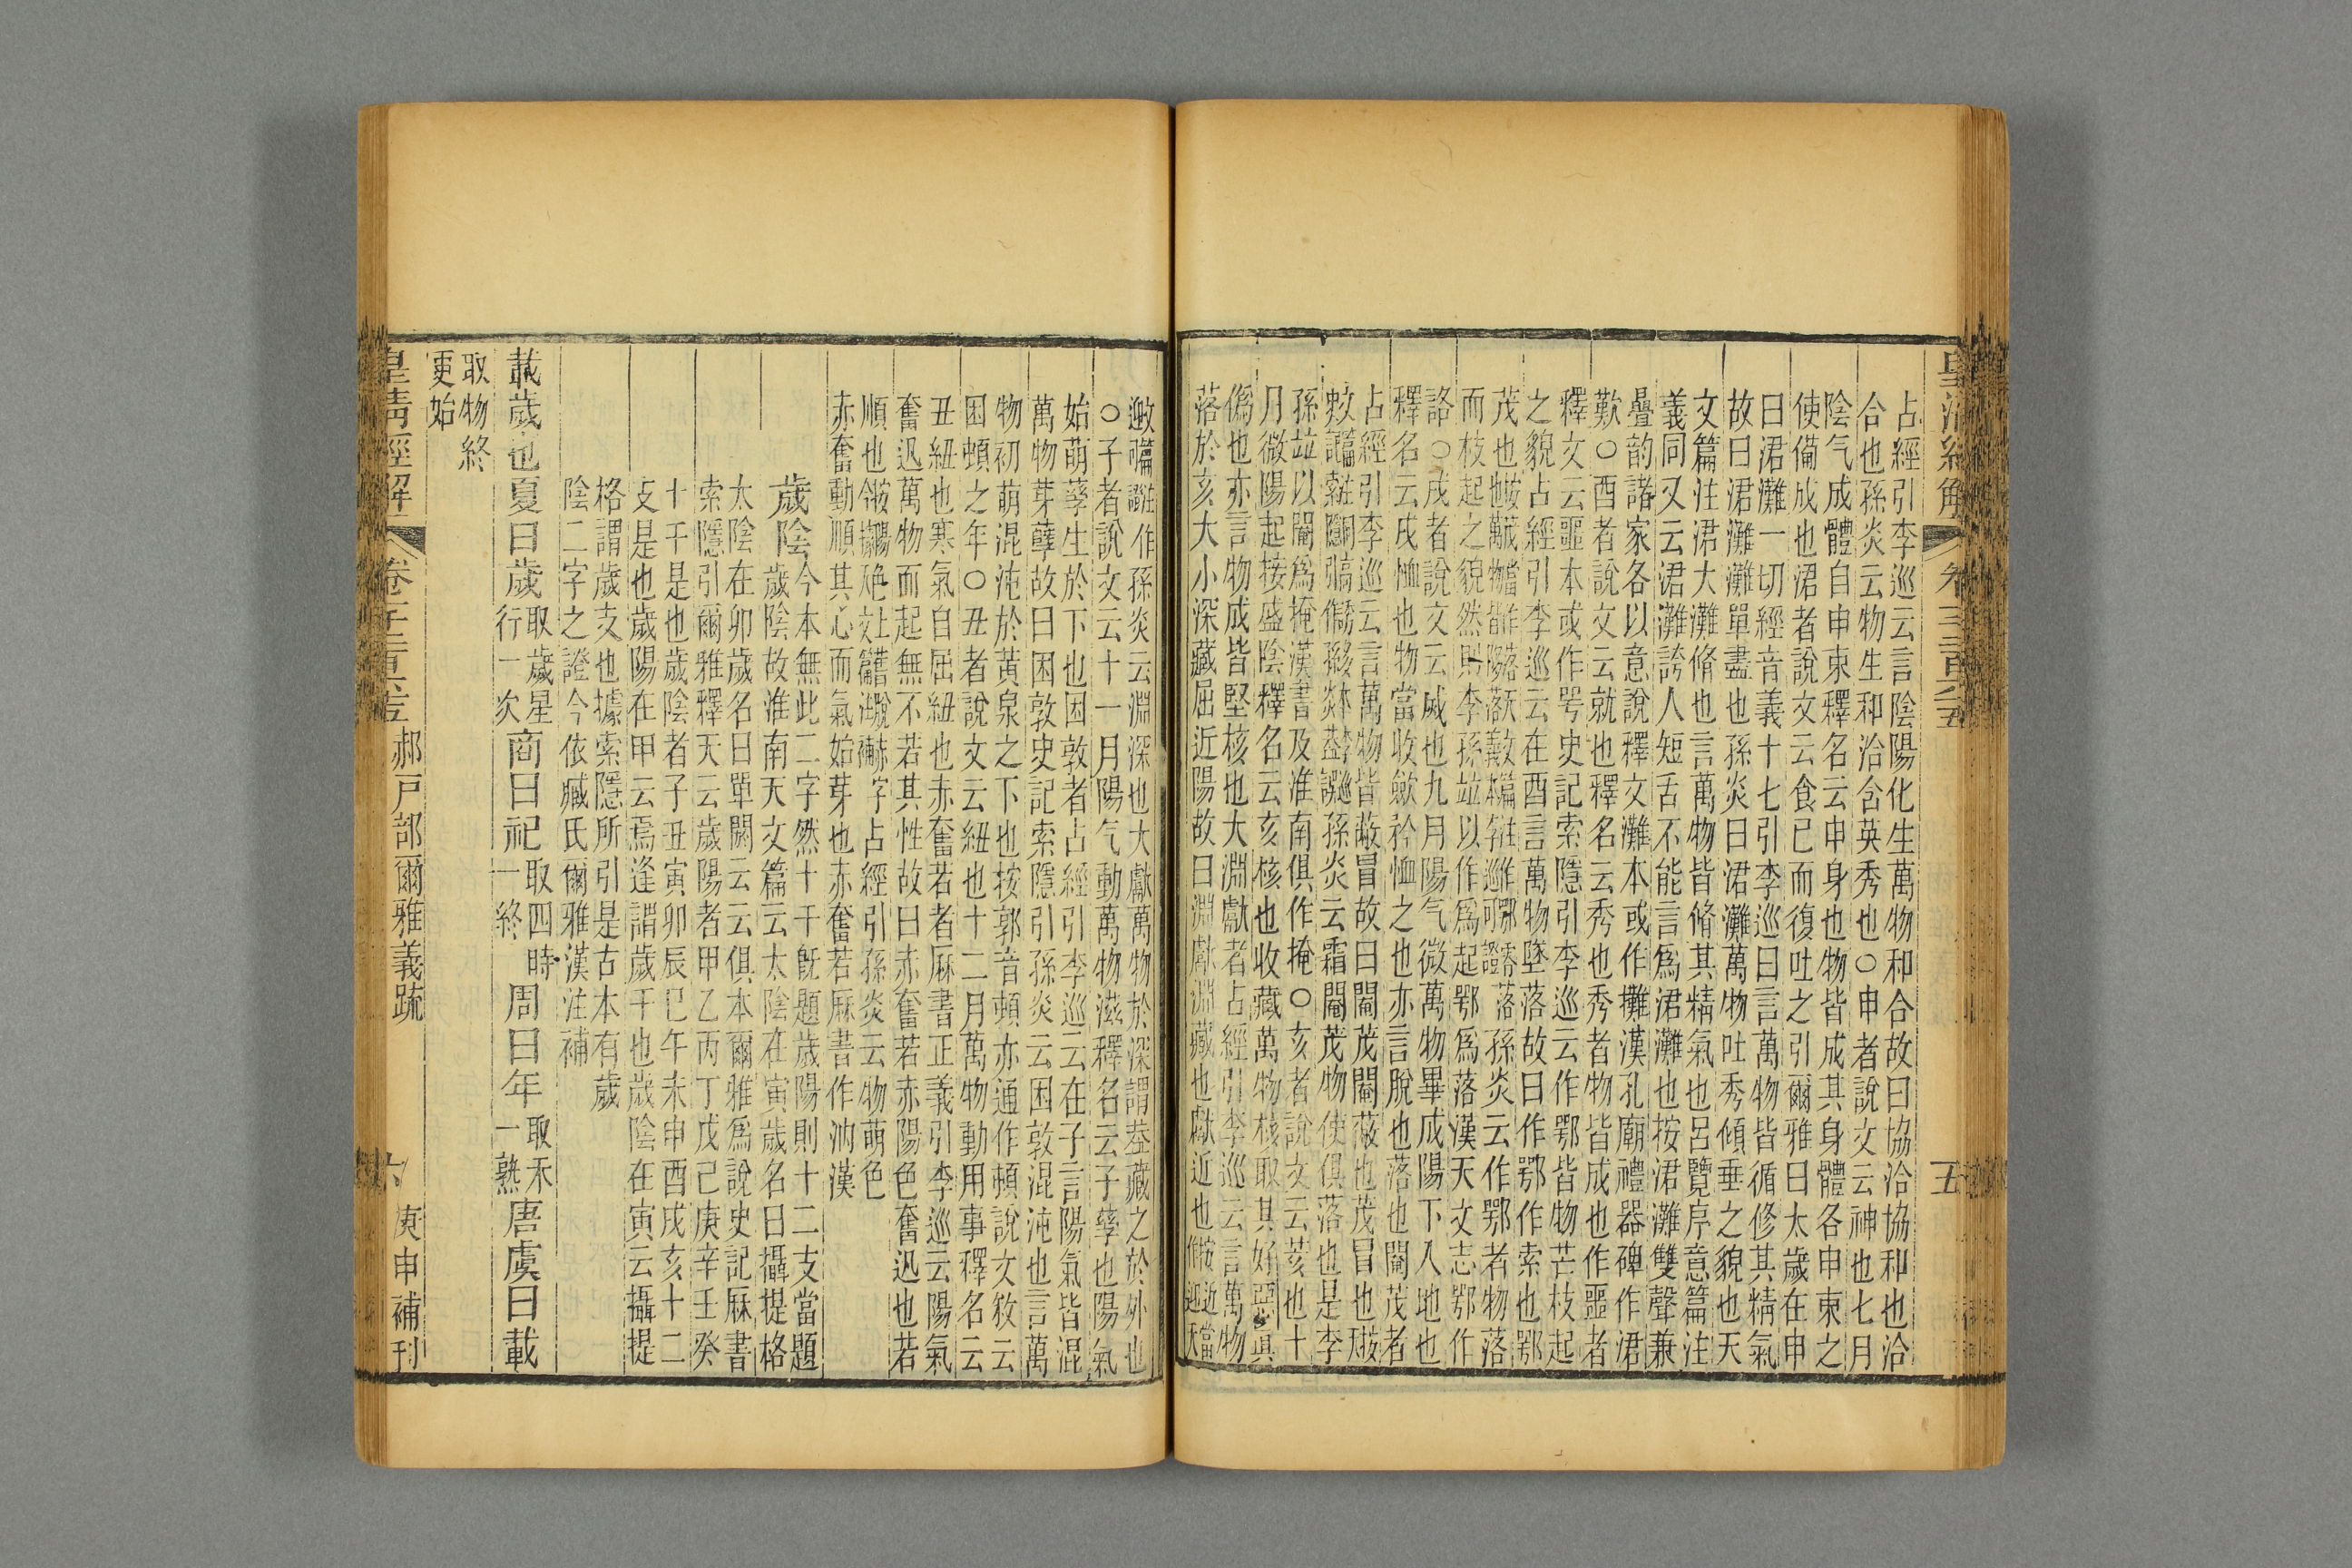 占經引李巡云言陰陽化生萬物和合故曰協洽協和也洽
合也孫炎云物生和洽含英秀也○申者說文云神也七月
陰气成體自申束釋名云申身也物皆成其身體各申束之
使備成也涒者說文云食已而復吐之引爾雅曰太歲在申
曰涒灘一切經音義十七引李巡曰言萬物皆循修其精氣
故曰涒灘灘單盡也孫炎曰涒灘萬物吐秀傾垂之貌也天
文篇注涒大灘脩也言萬物皆脩其精氣也呂覽序意篇注
義同又云涒灘誇人短舌不能言爲涒灘也按涒灘雙聲兼
疊韵諸家各以意說釋文灘本或作攤漢孔廟禮器碑作涒
歎○酉者說文云就也釋名云秀也秀者物皆成也作噩者
釋文云噩本或作咢史記索隱引李巡云作鄂皆物芒枝起
之貌占經引李巡云在酉言萬物墜落故曰作鄂作索也鄂
茂也落孫炎云作鄂者物落
而枝起之貌然則李孫竝以作爲起鄂爲落漢天文志鄂作
詻○戌者說文云威也九月陽气微萬物畢成陽下入地也
釋名云戌恤也物當收斂矜恤之也亦言脫也落也閹茂者
占經引李巡云言萬物皆蔽冒故曰閹茂閹蔽也茂冒也
孫炎云霜閹茂物使俱落也是李
孫竝以閹爲掩漢書及淮南俱作掩○亥者說文云荄也十
月微陽起接盛陰釋名云亥核也收藏萬物核取其好惡眞
僞也亦言物成皆堅核也大淵獻者占經引李巡云言萬物
落於亥大小深藏屈近陽故曰淵獻淵藏也獻近也
皇清經解
卷三百六五
五
孫炎云淵深也大獻萬物於深謂葢藏之於外也
○子者說文云十一月陽气動萬物滋釋名云子孳也陽氣
始萌孳生於下也困敦者占經引李巡云在子言陽氣皆混
萬物芽孽故曰困敦史記索隱引孫炎云困敦混沌也言萬
物初萌混沌於黃泉之下也按郭音頓亦通作頓說文敦云
困頓之年○丑者說文云紐也十二月萬物動用事釋名云
丑紐也寒氣自屈紐也赤奮若者厤書正義引李巡云陽氣
奮迅萬物而起無不若其性故曰赤奮若赤陽色奮迅也若
順也字占經引孫炎云物萌色
赤奮動順其心而氣始芽也赤奮若厤書作汭漢
歲陰今本無此二字然十干旣題歲陽則十二支當題
歲陰故淮南天文篇云太陰在寅歲名曰攝提格
太陰在卯歲名曰單閼云云俱本爾雅爲說史記厤書
索隱引爾雅釋天云歲陽者甲乙丙丁戊己庚辛壬癸
十干是也歲陰者子丑寅卯辰巳午未申酉戌亥十二
支是也歲陽在甲云焉逢謂歲干也歲陰在寅云攝提
格謂歲支也據索隱所引是古本有歲
陰二字之證今依臧氏爾雅漢注補
載歲也夏曰歲取歲星行一次商曰祀取四時一終周曰年取禾一熟唐虞曰載
取物終
更始
皇清經解
郝戶部爾雅義疏
六
庚申補刊